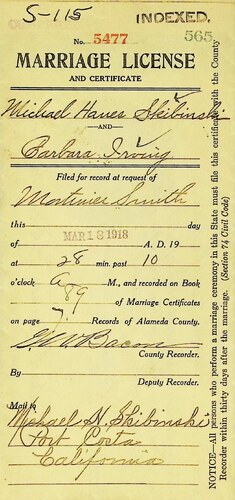 S-115
INDEXED.
No. 5477
565.
MARRIAGE LICENSE
AND CERTIFICATE
Michael Hanes Skibinski
—AND—
Barbara Irving
Filed for record at request of
Mortimer Smith
this day
of MAR 18 1918 A. D. 19
at 28 min. past 10
o'clock A M., and recorded on Book
89 of Marriage Certificates
on page 7. Records of Alameda County.
Bacon
County Recorder.
By
Deputy Recorder.
Mail to
Michael H. Skibinski
Port Costa
California
NOTICE—All persons who perform a marriage ceremony in this State must file this certificate with the County
Recorder within thirty days after the marriage. (Section 74 Civil Code)